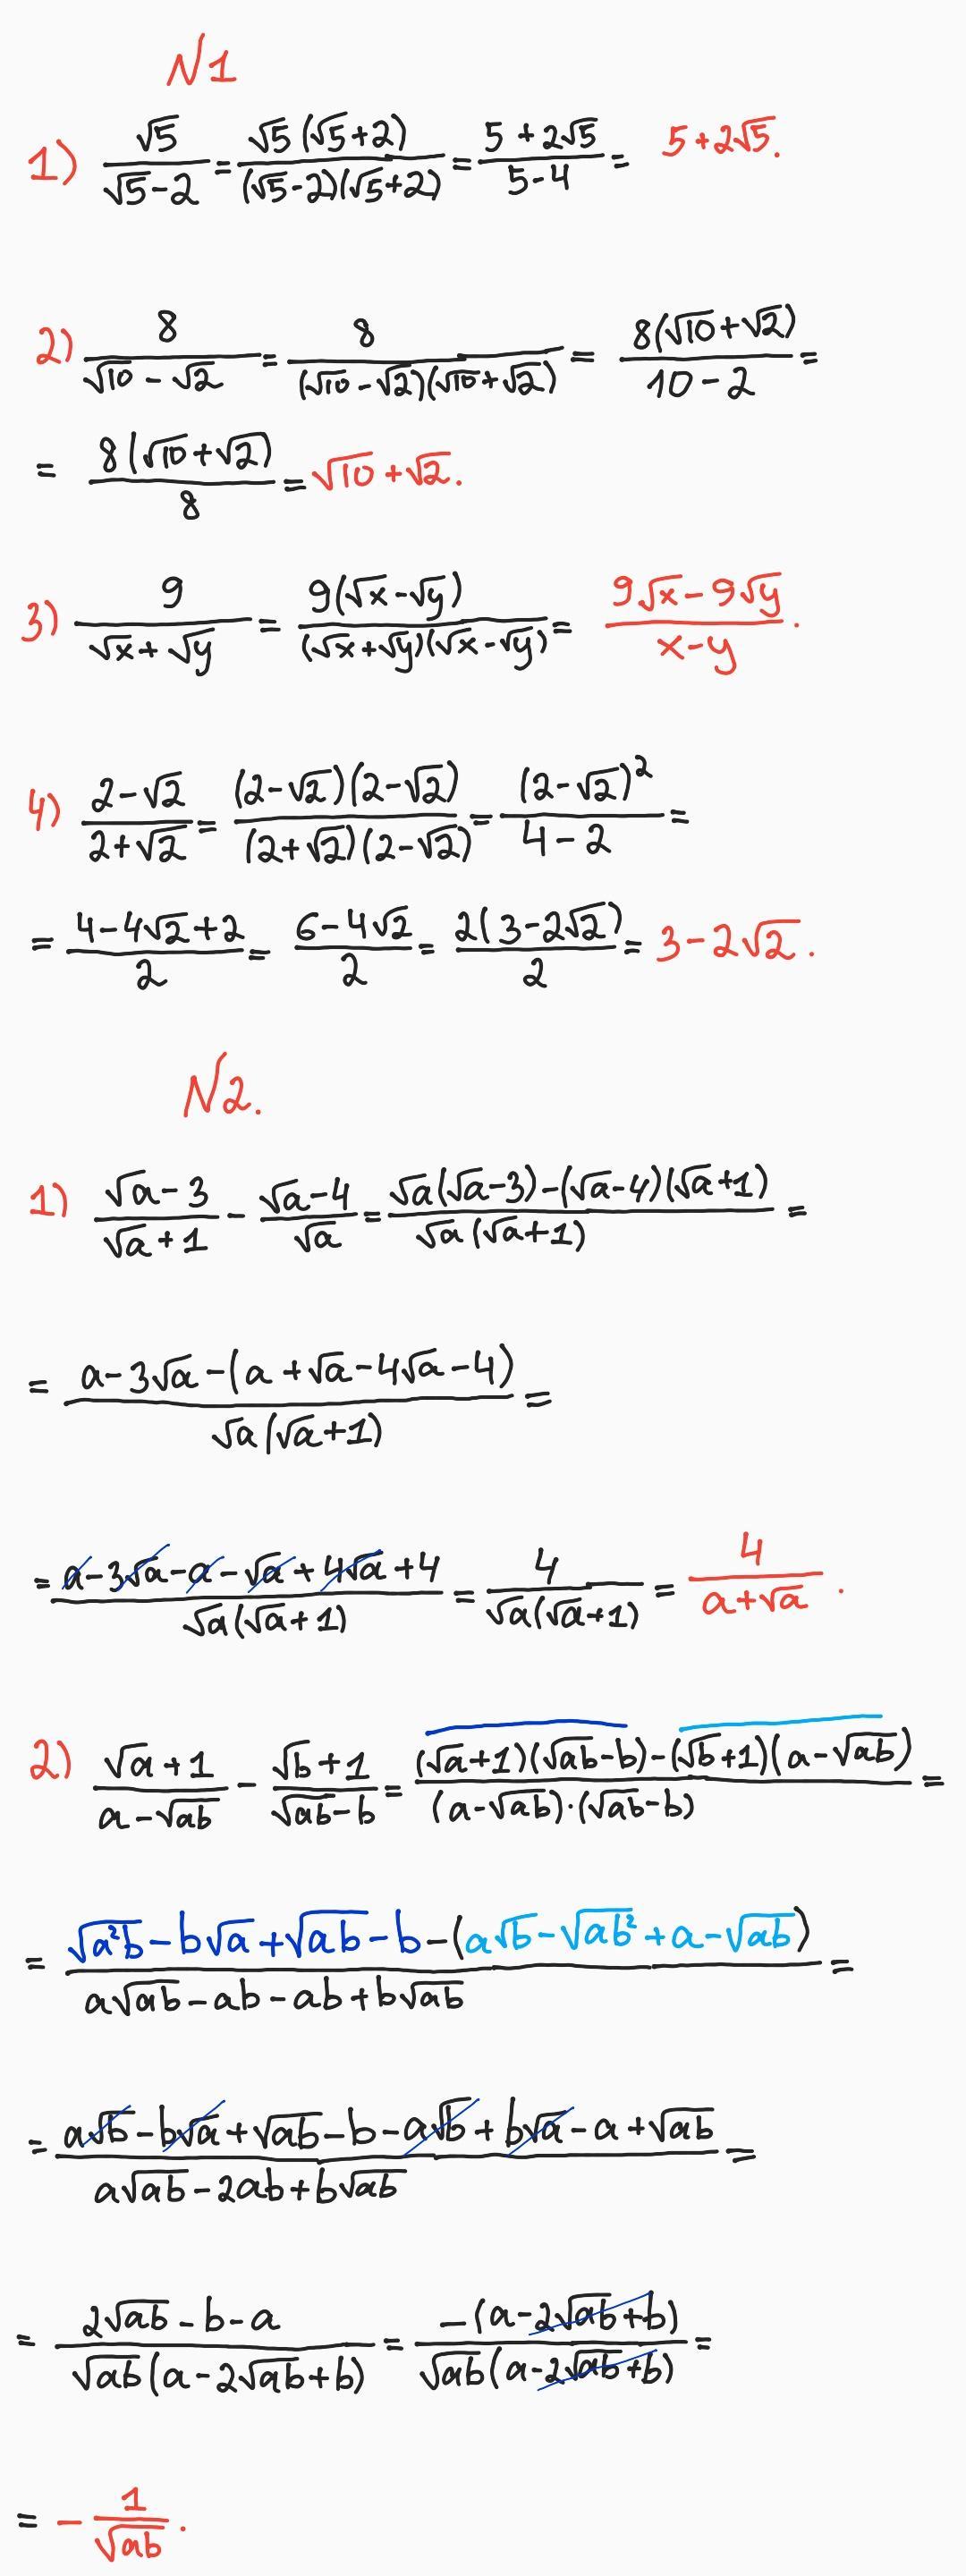 №1
1) √5/(√5-2) = √5(√5+2)/((√5-2)(√5+2)) = (5+2√5)/(5-4) = 5+2√5.
2) 8/(√10-√2) = 8/((√10-√2)(√10+√2)) = 8(√10+√2)/(10-2) =
= 8(√10+√2)/8 = √10+√2.
3) 9/(√x+√y) = 9(√x-√y)/((√x+√y)(√x-√y)) = (9√x-9√y)/(x-y).
4) (2-√2)/(2+√2) = (2-√2)(2-√2)/((2+√2)(2-√2)) = (2-√2)²/(4-2) =
= (4-4√2+2)/2 = (6-4√2)/2 = 2(3-2√2)/2 = 3-2√2.
№2.
1) (√a-3)/(√a+1) - (√a-4)/√a = (√a(√a-3)-(√a-4)(√a+1))/(√a(√a+1)) =
= (a-3√a-(a+√a-4√a-4))/(√a(√a+1)) =
= (a-3√a-a-√a+4√a+4)/(√a(√a+1)) = 4/(√a(√a+1)) = 4/(a+√a).
2) (√a+1)/(a-√ab) - (√b+1)/(√ab-b) = ((√a+1)(√ab-b)-(√b+1)(a-√ab))/((a-√ab)·(√ab-b)) =
= (√a²b-b√a+√ab-b-(a√b-√ab²+a-√ab))/(a√ab-ab-ab+b√ab) =
= (a√b-b√a+√ab-b-a√b+b√a-a+√ab)/(a√ab-2ab+b√ab) =
= (2√ab-b-a)/(√ab(a-2√ab+b)) = -(a-2√ab+b)/(√ab(a-2√ab+b)) =
= -1/√ab.